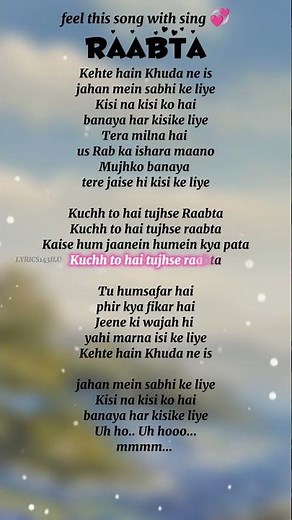 feel this song with sing 💞
RAABTA
Kehte hain Khuda ne is
jahan mein sabhi ke liye
Kisi na kisi ko hai
banaya har kisike liye
Tera milna hai
us Rab ka ishara maano
Mujhko banaya
tere jaise hi kisi ke liye
Kuchh to hai tujhse Raabta
Kuchh to hai tujhse raabta
Kaise hum jaanein humein kya pata
LYRICS143ILU
Kuchh to hai tujhse raabta
Tu humsafar hai
phir kya fikar hai
Jeene ki wajah hi
yahi marna isi ke liye
Kehte hain Khuda ne is
jahan mein sabhi ke liye
Kisi na kisi ko hai
banaya har kisike liye
Uh ho.. Uh hooo...
mmmm...